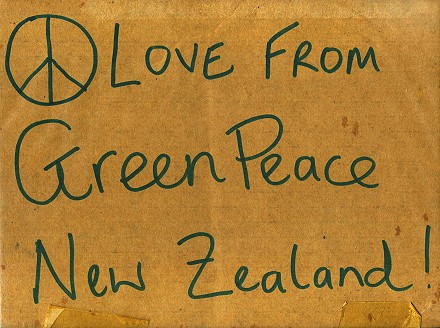 ☮ LOVE FROM
GreenPeace
New Zealand!